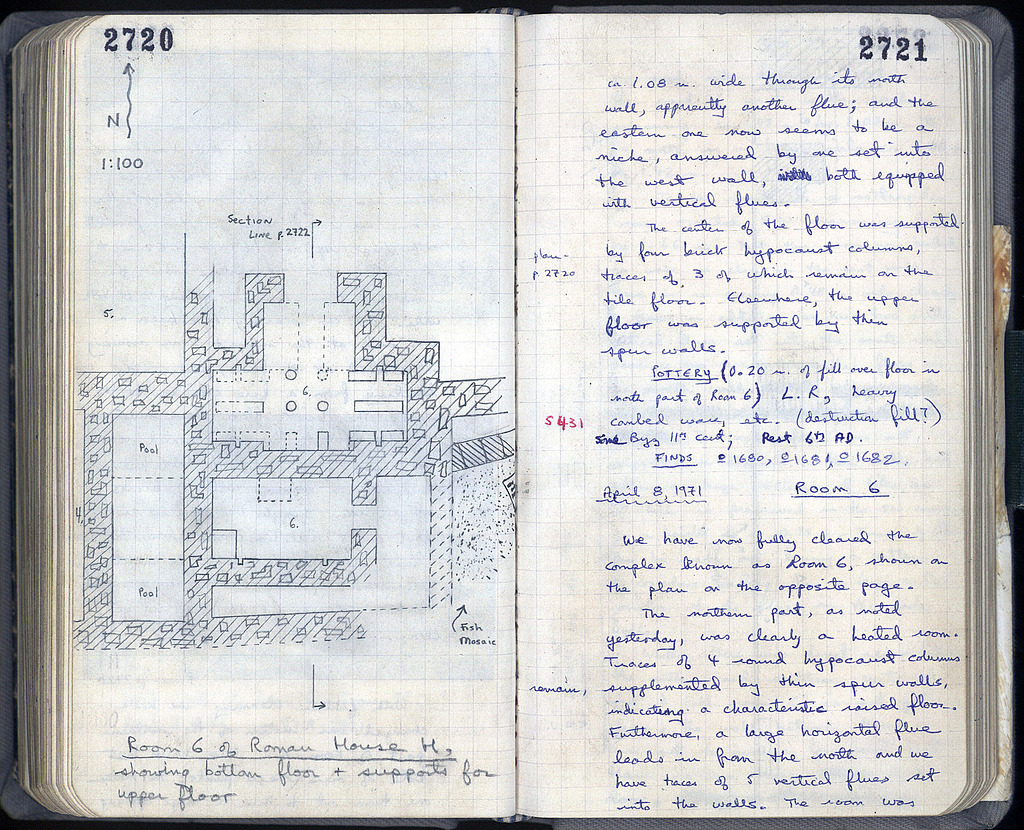 2720
N
1:100
Section
Line p. 2722
5.
6.
Pool
4.
6.
Pool
Fish
Mosaic
Room 6 of Roman House H,
showing bottom floor + supports for
upper floor
2721
1.08 m. wide through its north
wall, apparently another flue; and the
eastern one now seems to be a
niche, answered by one set into
the west wall, both equipped
with vertical flues.
The center of the floor was supported
plan-
p. 2720
by four brick hypocaust columns,
traces of 3 of which remain on the
tile floor. Elsewhere, the upper
floor was supported by thin
spur walls.
POTTERY (0.20 m. of fill over floor in
north part of Room 6) L.R., heavy
5431
combed ware, etc. (destruction fill?)
some Byz 11th cent; Rest 6th AD.
FINDS 1680, 1681, 1682.
April 8, 1971 ROOM 6
We have now fully cleared the
complex known as Room 6, shown on
the plan on the opposite page.
The northern part, as noted
yesterday, was clearly a heated room.
Traces of 4 round hypocaust columns
remain, supplemented by thin spur walls,
indicating a characteristic raised floor.
Furthermore, a large horizontal flue
leads in from the north and we
have traces of 5 vertical flues set
into the walls. The room was